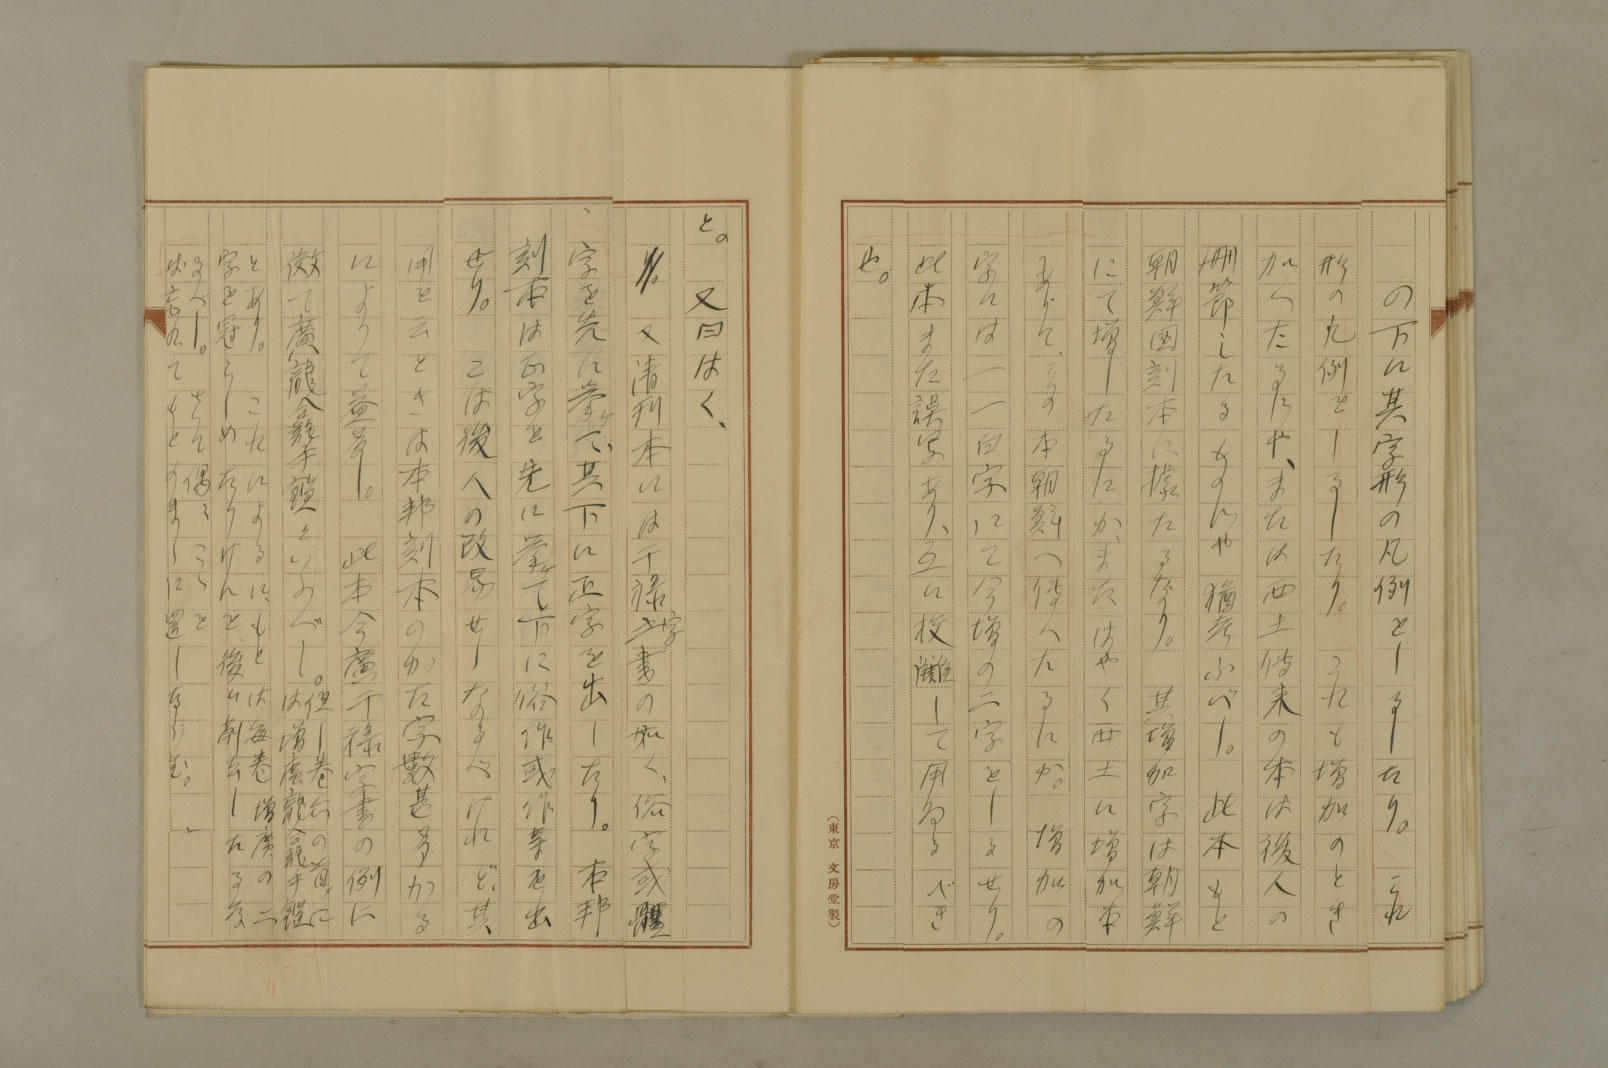 の下に其字形の凡例としるしたり。これ
形の凡例としるしたり。これも増加のとき
加へたるにや、または西土傳来の本は後人の
刪節したるものにや猶考ふべし。此本もと
朝鮮国刻本に據たるなり。其増加字は朝鮮
にて増したるにか、またはやく西土に増加本
ありて、その本朝鮮へ傳へたるにか。増加の
字には一一白字にて今増の二字をしるせり。
此本また誤写あり、互に校讎して用ゐるべき
也。
(東京 文房堂製)
と。又曰はく、
又清刊本には干禄字書の如く、俗字或體
字を先に挙て、其下に正字を出したり。本邦
刻本は正字を先に挙て下に俗作或作等を出
せり。こは後人の改易せしなるべけれど、其
用を云ときは本邦刻本のかた字數甚多かる
によりて益多し。此本今廣干禄字書の例に
傚て廣龍龕手鏡といふべし。但し巻六の首に
は増廣龍龕手鑑
とあり。これによるに、もとは毎巻増廣の二
字を冠らしめたりけんを後に削去したる
なるべし。さて偶こゝを
ば忘れてもとのまゝに置しならむ。」